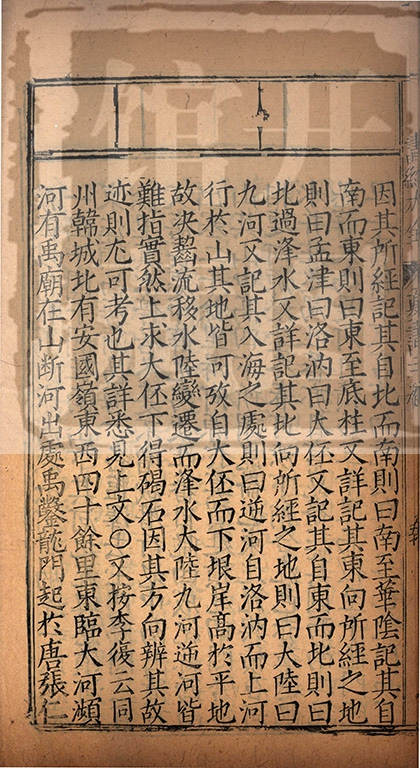 因其所經記其自北而南則曰南至華陰記其自
南而東則曰東至底柱又詳記其東向所經之地
則曰孟津曰洛汭曰大伾又記其自東而北則曰
北過洚水又詳記其北向所經之地則曰大陸曰
九河又記其入海之處則曰逆河自洛汭而上河
行於山其地皆可攷自大伾而下垠岸高於平地
故决齧流移水陸變遷而洚水大陸九河逆河皆
難指實然上求大伾下得碣石因其方向辨其故
迹則尤可考也其詳悉見上文○又按李復云同
州韓城北有安國嶺東西四十餘里東臨大河瀕
河有禹廟在山断河出處禹鑿龍門起於唐張仁